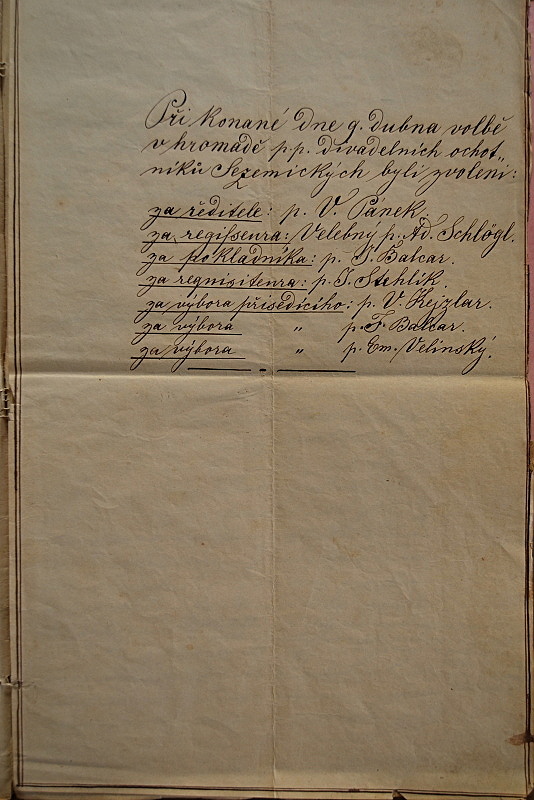 Při konané dne 9. dubna volbě
v hromadě p.p. divadelních ochot„
níků Sezemických byli zvoleni:
za ředitele: p. V. Pánek,
za regisseura: Velebný p. Ad. Schlögl.
za pokladníka: p. J. Balcar.
za requisiteura: p. J. Stehlík.
za výbora přísedícího: p. V. Kejzlar.
za výbora „ p. F. Balcar.
za výbora „ p. Em. Velinský.